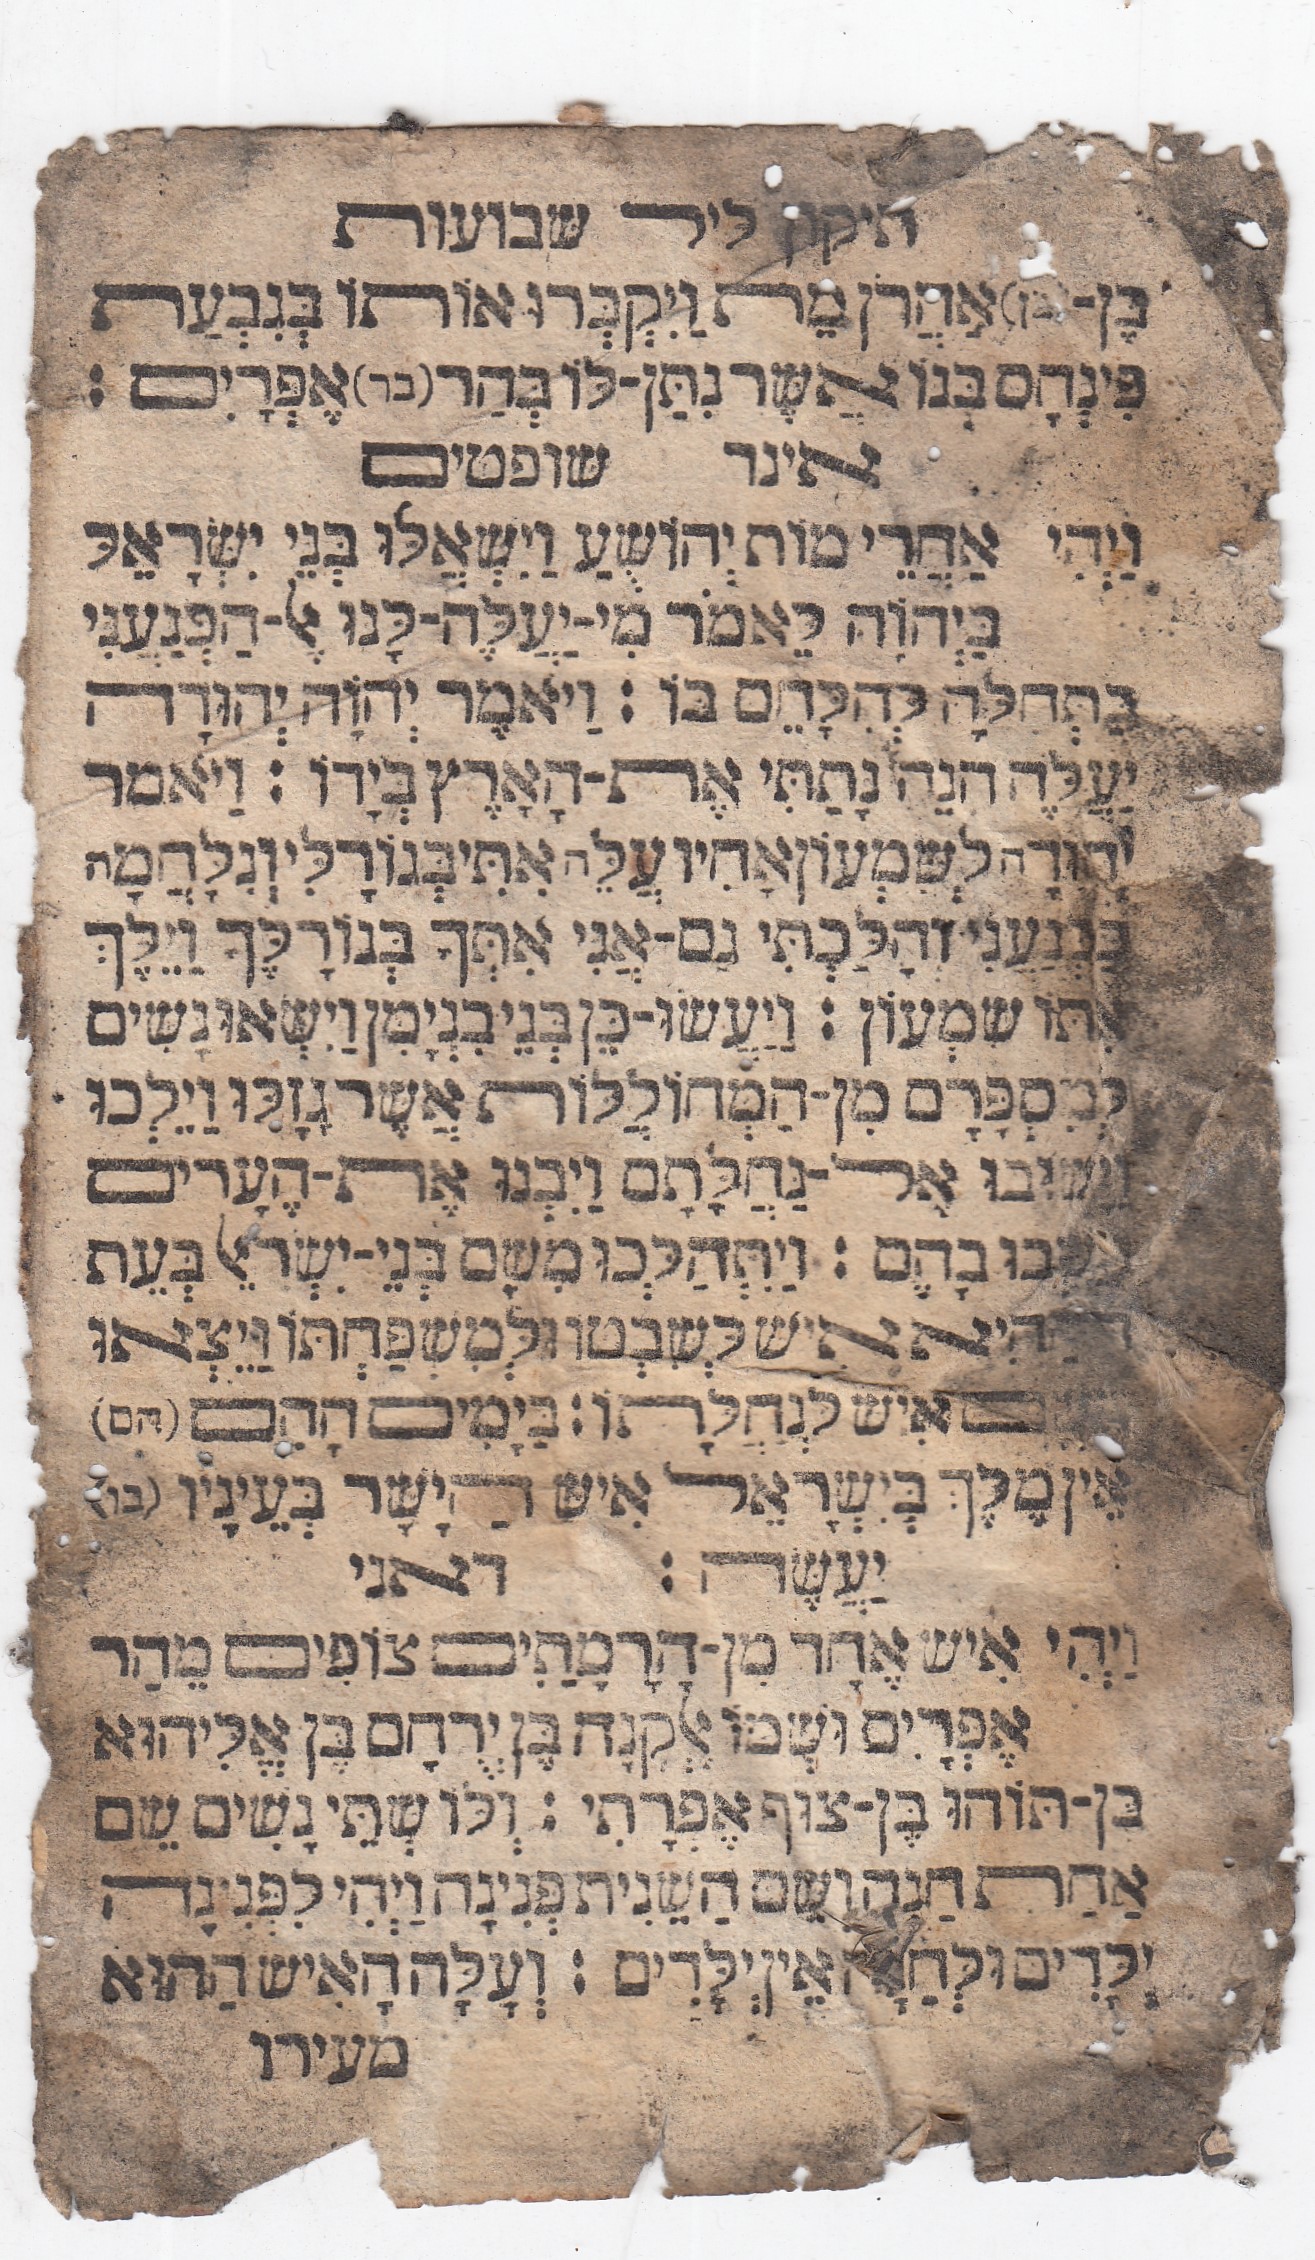 תיקון ליל שבועות
בֶּן-(בן)אַהֲרֹן מֵת וַיִּקְבְּרוּ אוֹתוֹ בְּגִבְעַת
פִּינְחָס בְּנוֹ אֲשֶׁר נִתַּן-לוֹ בְּהַר (בר) אֶפְרָיִם :
אינר שופטים
וַיְהִי אַחֲרֵי מוֹת יְהוֹשֻׁעַ וַיִּשְׁאֲלוּ בְּנֵי יִשְׂרָאֵל
בַּיְהוָֹה לֵאמֹר מִי-יַעֲלֶה-לָּנוּ אֶל-הַכְּנַעֲנִי
בַּתְּחִלָּה לְהִלָּחֵם בּוֹ : וַיֹּאמֶר יְהוָֹה יְהוּדָה
יַעֲלֶה הִנֵּה נָתַתִּי אֶת-הָאָרֶץ בְּיָדוֹ : וַיֹּאמר
יְהוּדָה לְשִׁמְעוֹן אָחִיו עֲלֵה אִתִּי בְּגוֹרָלִי וְנִלָּחֲמָה
בַּכְּנַעֲנִי וְהָלַכְתִּי גַם-אֲנִי אִתְּךָ בְּגוֹרָלֶךָ וַיֵּלֶךְ
אִתּוֹ שִׁמְעוֹן : וַיַּעֲשׂוּ-כֵן בְּנֵי בִנְיָמִן וַיִּשְׂאוּ נָשִׁים
לְמִסְפָּרָם מִן-הַמְּחוֹלֲלוֹת אֲשֶׁר גָּזָלוּ וַיֵּלְכוּ
וַיָּשׁוּבוּ אֶל-נַחֲלָתָם וַיִּבְנוּ אֶת-הֶעָרִים
וַיֵּשְׁבוּ בָהֶם : וַיִּתְהַלְּכוּ מִשָּׁם בְּנֵי-יִשְׂרָאֵל בָּעֵת
הַהִיא אִישׁ לְשִׁבְטוֹ וּלְמִשְׁפַּחְתּוֹ וַיֵּצְאוּ
מִשָּׁם אִישׁ לְנַחֲלָתוֹ : בַּיָּמִים הָהֵם (הם)
אֵין מֶלֶךְ בְּיִשְׂרָאֵל אִישׁ הַיָּשָׁר בְּעֵינָיו (בו)
יַעֲשֶׂה : דאני
וַיְהִי אִישׁ אֶחָד מִן-הָרָמָתַיִם צוֹפִים מֵהַר
אֶפְרָיִם וּשְׁמוֹ אֶלְקָנָה בֶּן יְרֻחָם בֶּן אֱלִיהוּא
בֶּן-תּוֹהוּ בֶּן-צוּף אֶפְרָתִי : וְלוֹ שְׁתֵּי נָשִׁים שֵׁם
אַחַת חַנָּה וְשֵׁם הַשֵּׁנִית פְּנִינָּה וַיְהִי לִפְנִינָּה
יְלָדִים וּלְחַנָּה אֵין יְלָדִים : וְעָלָה הָאִישׁ הַהוּא
מעירו